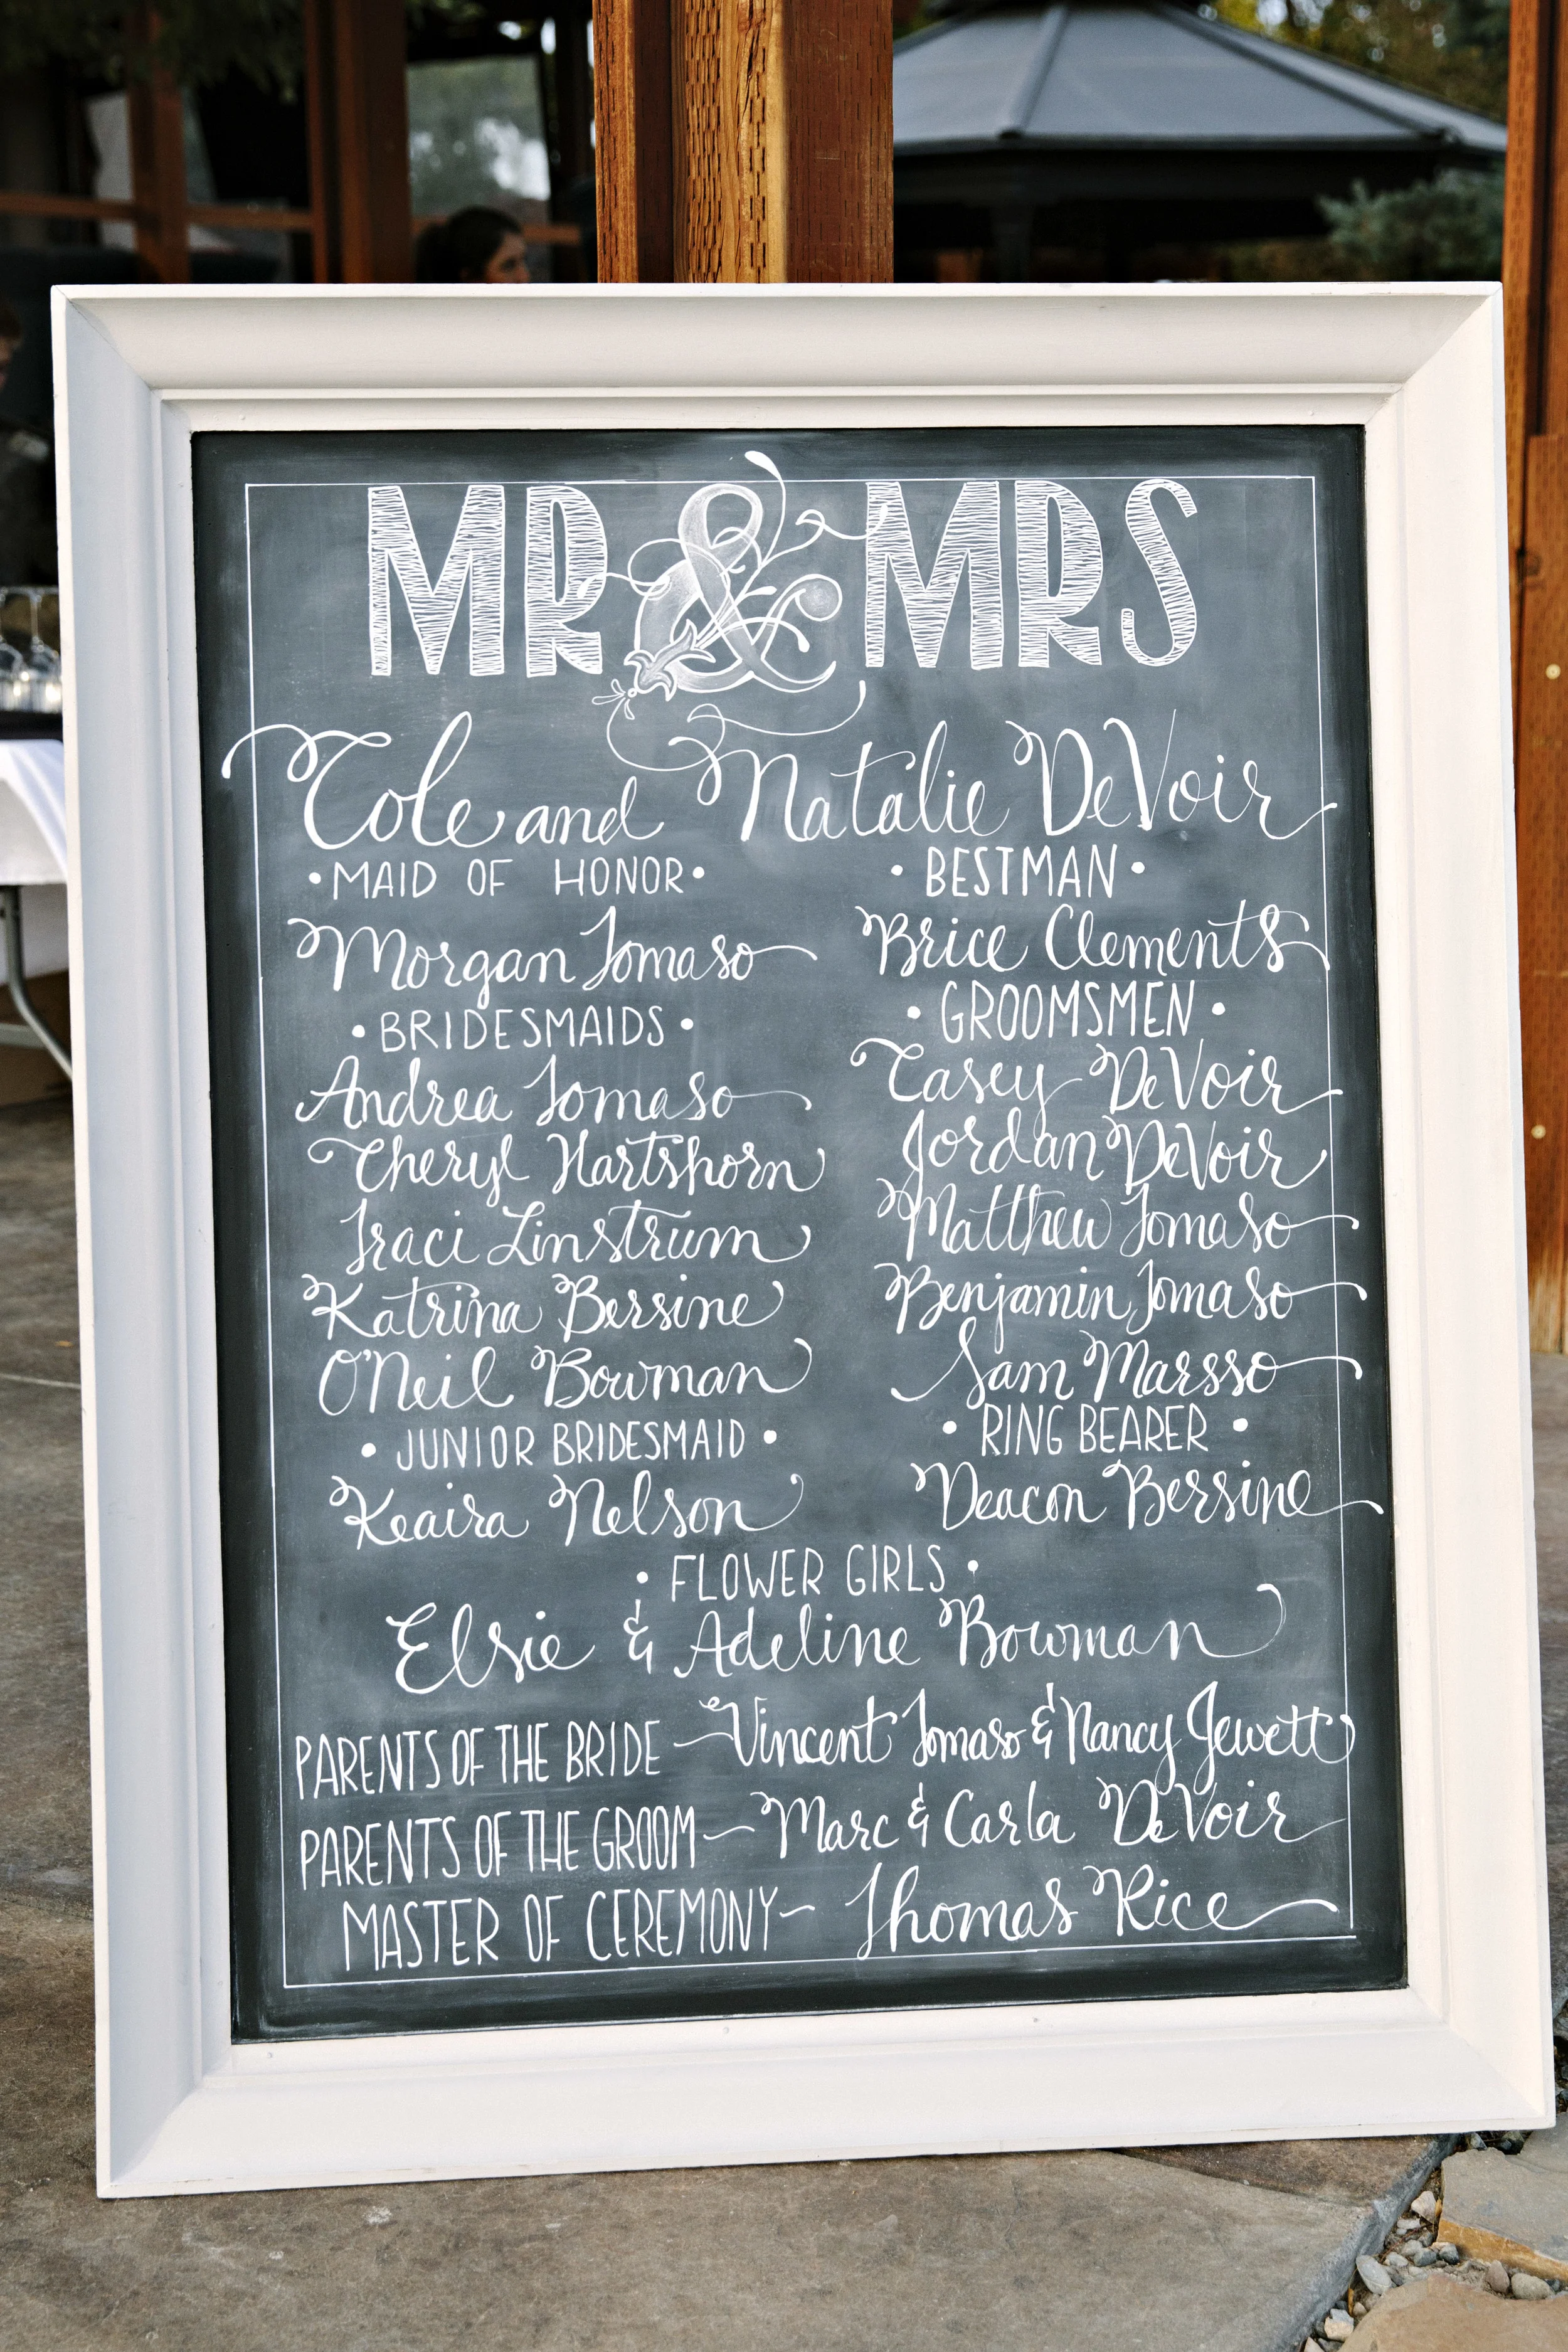 MR & MRS
Cole and Natalie DeVoir
• MAID OF HONOR •
Morgan Tomaso
• BRIDESMAIDS •
Andrea Tomaso
Cheryl Hartshorn
Traci Linstrum
Katrina Bersine
O'Neil Bowman
• JUNIOR BRIDESMAID •
Keaira Nelson
• BESTMAN •
Brice Clements
• GROOMSMEN •
Casey DeVoir
Jordan DeVoir
Matthew Tomaso
Benjamin Tomaso
Sam Marsso
• RING BEARER •
Deacon Bersine
• FLOWER GIRLS •
Elsie & Adeline Bowman
PARENTS OF THE BRIDE ~ Vincent Tomaso & Nancy Jewett
PARENTS OF THE GROOM ~ Marc & Carla DeVoir
MASTER OF CEREMONY ~ Thomas Rice